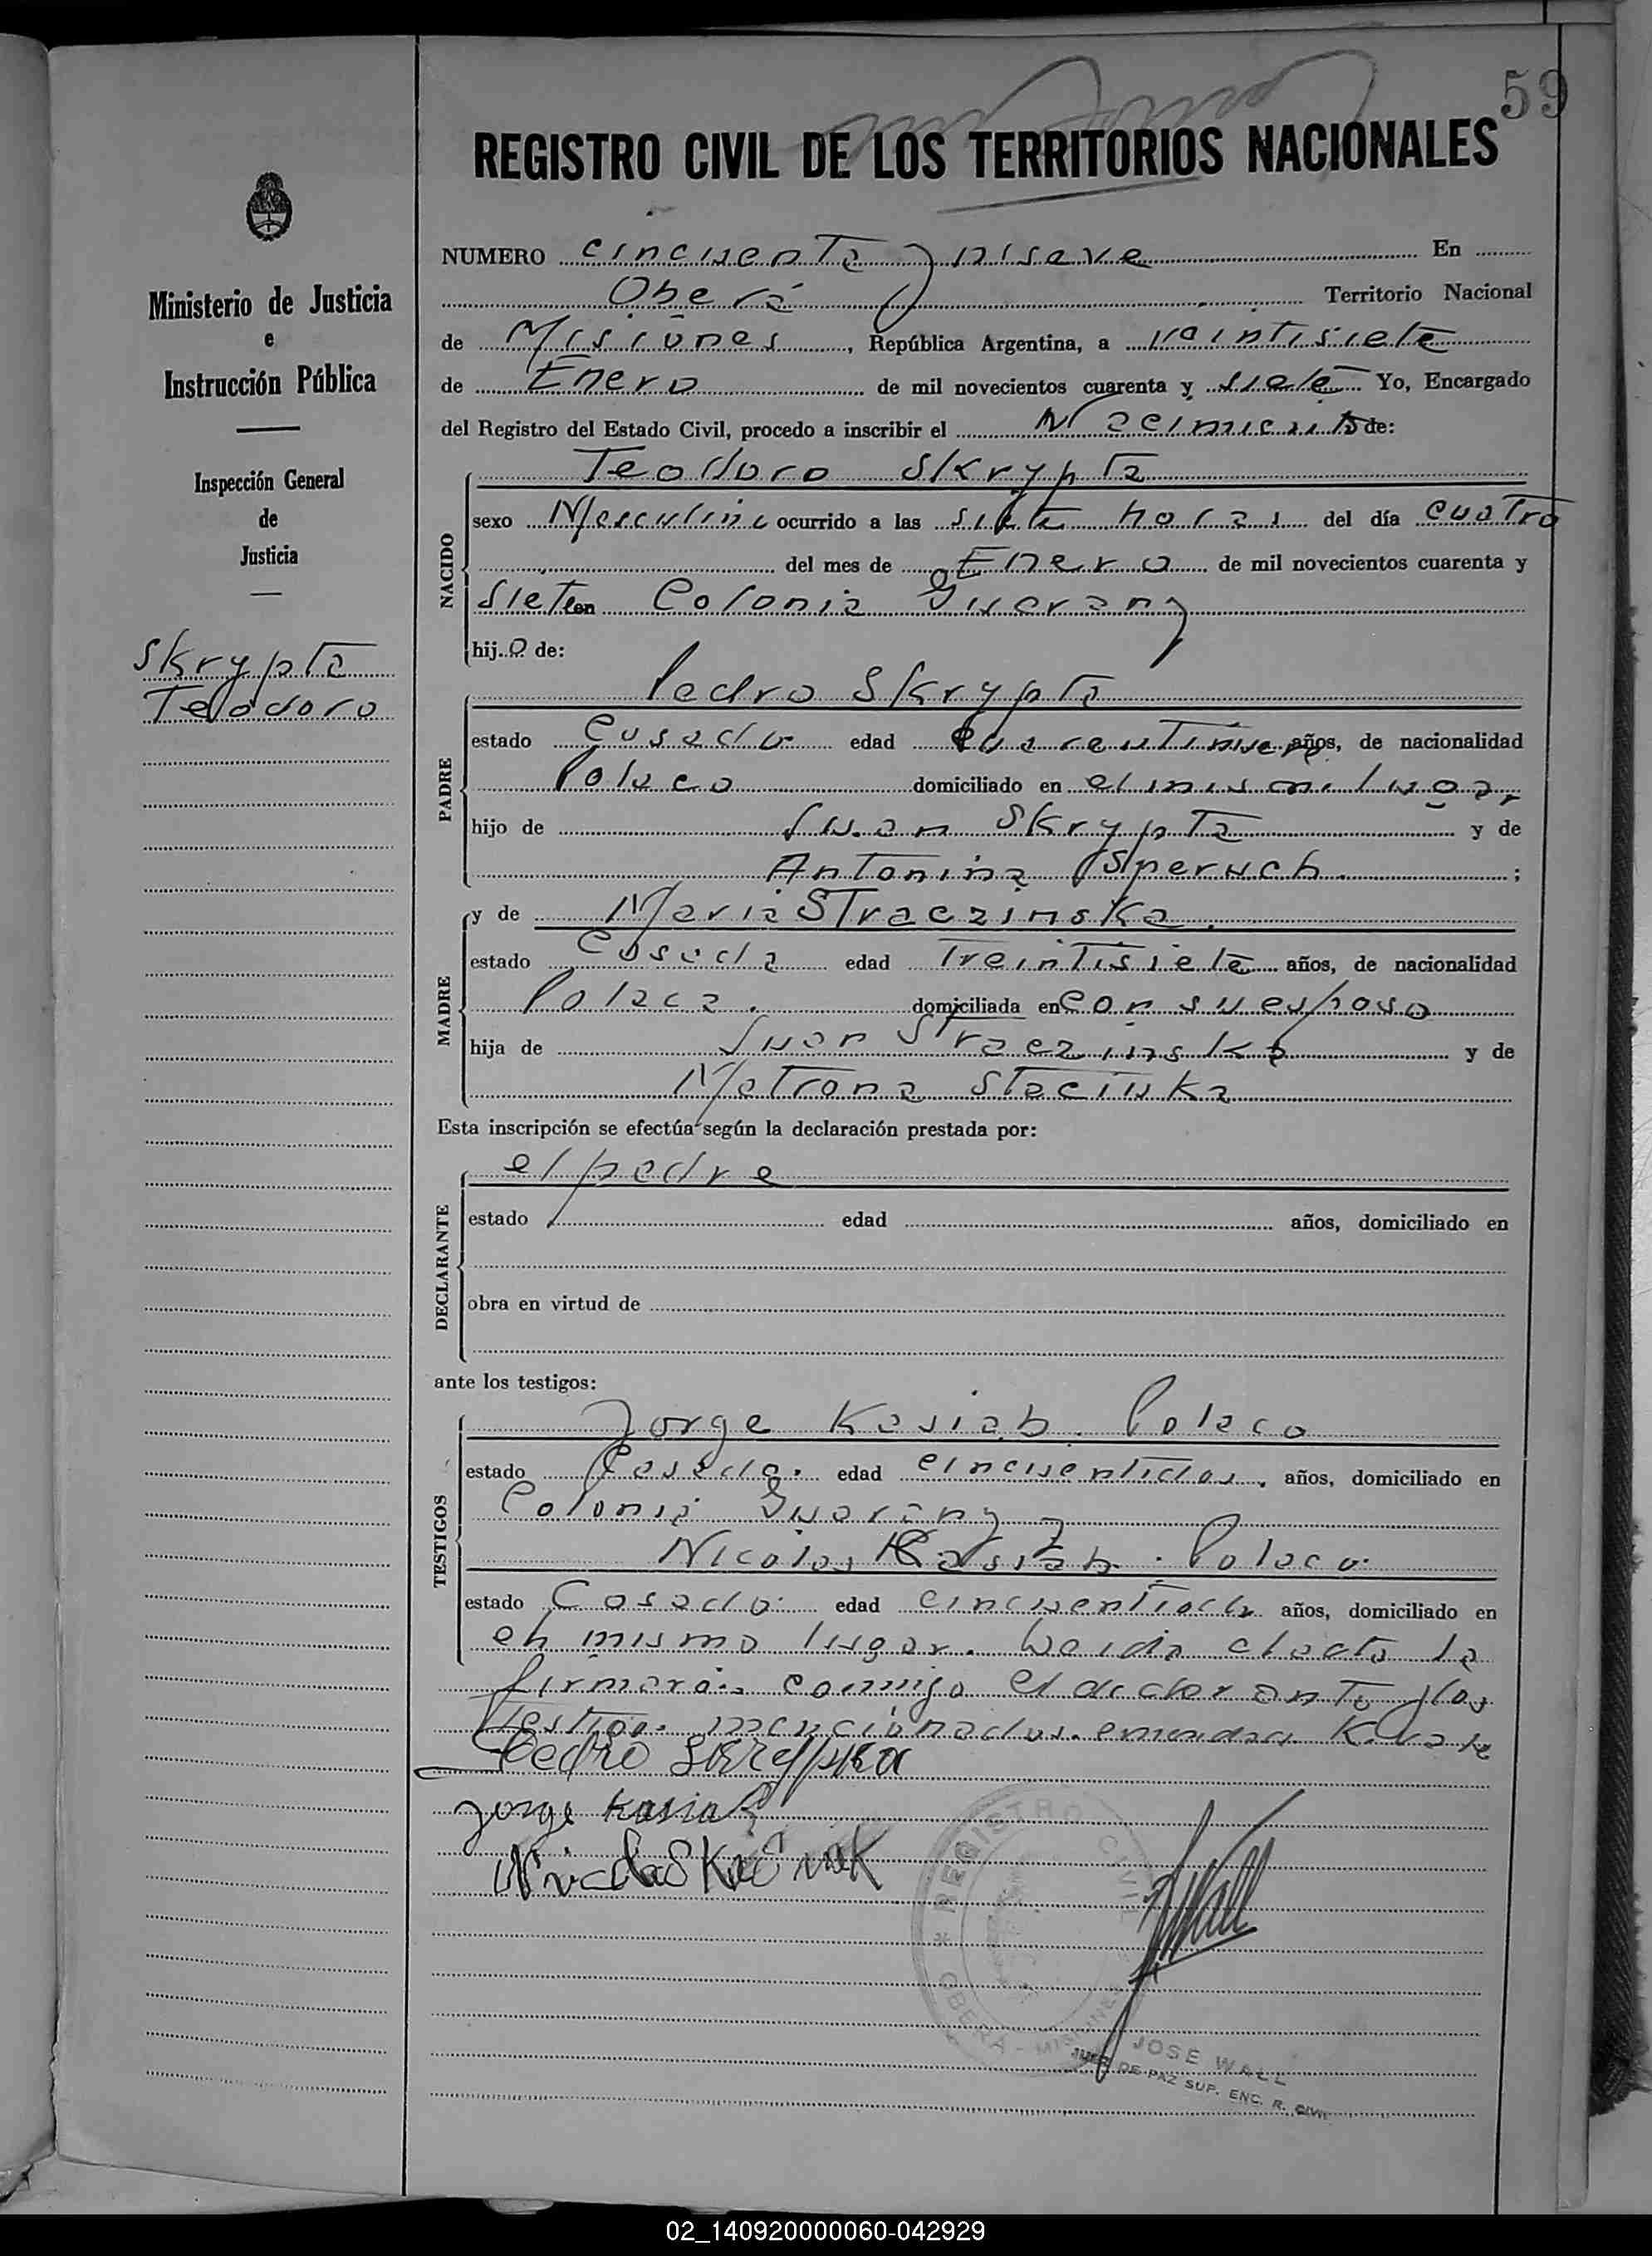 59
REGISTRO CIVIL DE LOS TERRITORIOS NACIONALES
NUMERO cincuenta y nueve En
Oberá Territorio Nacional
de Misiones, República Argentina, a veintisiete
de Enero de mil novecientos cuarenta y siete Yo, Encargado
del Registro del Estado Civil, procedo a inscribir el Nacimiento de:
Ministerio de Justicia
e
Instrucción Pública
Inspección General
de
Justicia
Skrypta
Teodoro
NACIDO
Teodoro Skrypta
sexo Masculino ocurrido a las siete horas del día cuatro
del mes de Enero de mil novecientos cuarenta y
Siete en Colonia Guarany
hijo de:
PADRE
Pedro Skrypta
estado Casado edad cuarentinueve años, de nacionalidad
Polaco domiciliado en el mismo lugar
hijo de Juan Skrypta y de
Antonina Speruch ;
MADRE
y de Maria Straczinska
estado Casada edad Treintisiete años, de nacionalidad
Polaca. domiciliada en con su esposo
hija de Juan Straczinska y de
Matrona Staciuka
Esta inscripción se efectúa según la declaración prestada por:
DECLARANTE
el padre
estado edad años, domiciliado en
obra en virtud de
ante los testigos:
TESTIGOS
Jorge Kasiab. Polaco
estado Casado. edad cincuentidos. años, domiciliado en
Colonia Guarany y
Nicolas Kasiab. Polaco.
estado Casado. edad cincuentiocho años, domiciliado en
en mismo lugar. Leida el acta la
firmaron conmigo el declarante y los
testigos mencionados. enmendado K. vale
Pedro Skrypka
Jorge Kasiak
Nicolas Kasiak
JWall
REGISTRO CIVIL
OBERÁ - MISIONES
JOSE WALL
JUEZ DE PAZ SUP. ENC. R. CIVIL
02_140920000060-042929